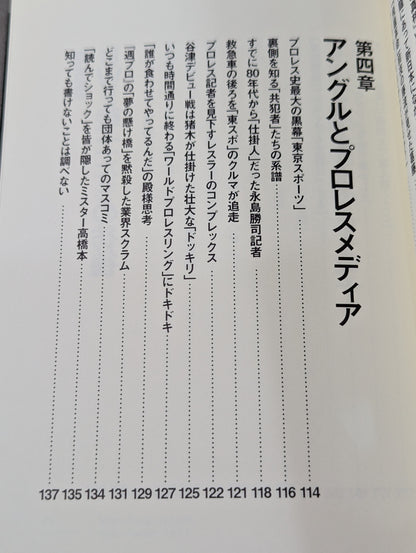 第四章
アングルとプロレスメディア
プロレス史最大の黒幕「東京スポーツ」……114
裏側を知る「共犯者」たちの系譜……116
すでに80年代から「仕掛人」だった永島勝司記者……118
救急車の後ろを「東スポ」のクルマが追走……121
プロレス記者を見下すレスラーのコンプレックス……122
谷津デビュー戦は猪木が仕掛けた壮大な「ドッキリ」……125
いつも時間通りに終わる「ワールドプロレスリング」にドキドキ……127
「誰が食わせてやってるんだ」の殿様思考……129
「週プロ」の「夢の懸け橋」を黙殺した業界スクラム……131
どこまで行っても団体あってのマスコミ……134
「読んでショック」を皆が隠したミスター高橋本……135
知っても書けないことは調べない……137